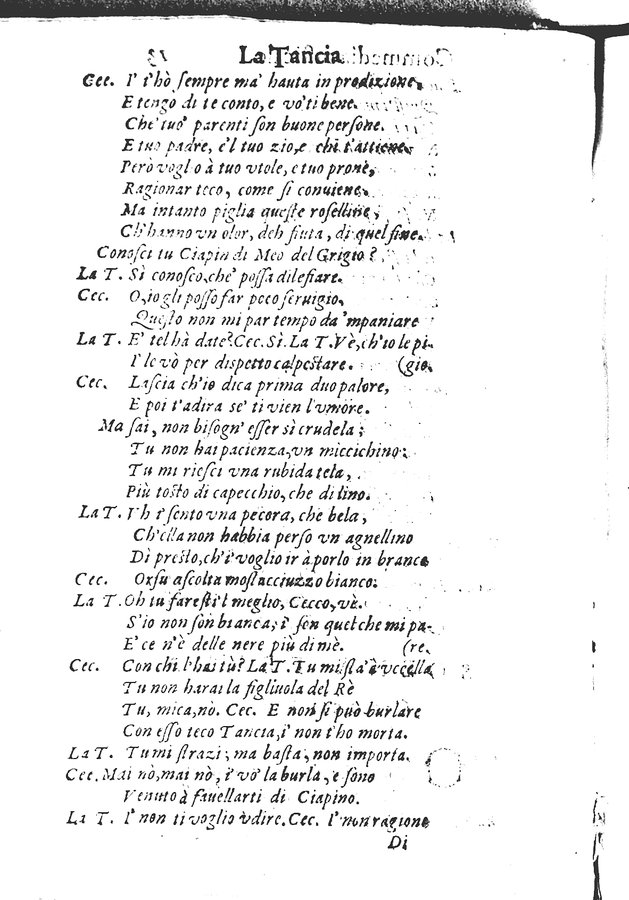 La Tancia
Cec. I' t'hò sempre ma' hauta in prodizione,
E tengo di te conto, e vo'ti bene.
Che tuo' parenti son buone persone.
E tuo padre, e'l tuo zio, e chi t'attiene,
Però voglo à tuo vtole, e tuo prone,
Ragionar teco, come si conuiene.
Ma intanto piglia queste roselline,
Ch'hanno vn olor, deh fiuta, di quel fine.
Conosci tu Ciapin di Meo del Grigio?
La T. Sì conosco, che' possa dilefiare.
Cec. O, io gli posso far poco seruigio,
Questo non mi par tempo da 'mpaniare
La T. E' tel hà date? Cec. Sì. La T. Vè, ch'io le pi-
I' le vò per dispetto calpestare. (gio.
Cec. Lascia ch'io dica prima duo palore,
E poi t'adira se' ti vien l'vmore.
Ma sai, non bisogn' esser sì crudela;
Tu non hai pacienza, vn miccichino:
Tu mi riesci vna rubida tela,
Più tosto di capecchio, che di lino.
La T. Vh i' sento vna pecora, che bela,
Ch'ella non habbia perso vn agnellino
Dì presto, ch'i' voglio ir à porlo in branco
Cec. Orsu ascolta mostacciuzzo bianco.
La T. Oh tu faresti 'l meglio, Cecco, vè.
S'io non sòn bianca, i' son quel che mi pa-
E' ce n'è delle nere più di mè. (re.
Cec. Con chi l'hai tù? La T. Tu mi sta' à vccella
Tu non harai la figliuola del Rè
Tu, mica, nò. Cec. E non si può burlare
Con esso teco Tancia, i' non t'ho morta.
La T. Tu mi strazi; ma basta, non importa.
Cec. Mai nò, mai nò, i' vo' la burla, e sono
Venuto à fauellarti di Ciapino.
La T. I' non ti voglio vdire. Cec. I' non ragiono
Di